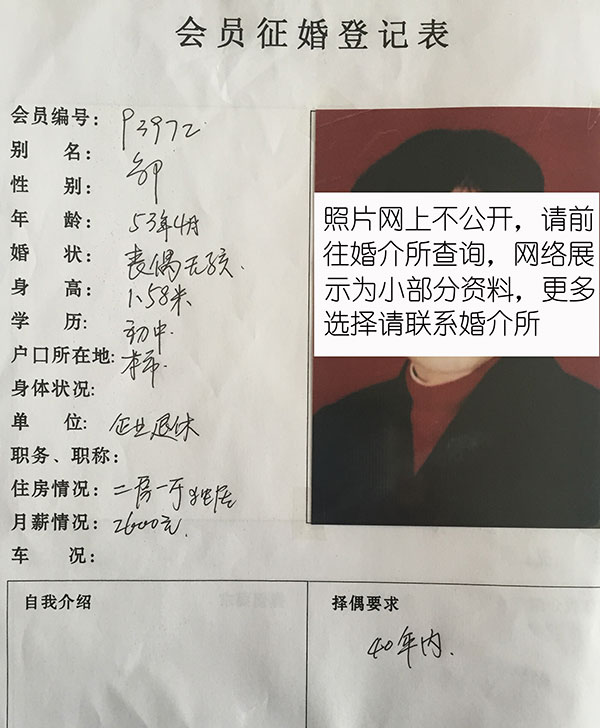 会员征婚登记表
会员编号：P3972
别 名：邹
性 别：
年 龄：53年4月
婚 状：丧偶无孩.
身 高：1.58米
学 历：初中.
户口所在地：本市.
身体状况：
单 位：企业退休
职务、职称：
住房情况：二房一厅独居
月薪情况：2600元.
车 况：
照片网上不公开，请前
往婚介所查询，网络展
示为小部分资料，更多
选择请联系婚介所
自我介绍
择偶要求
40年内.